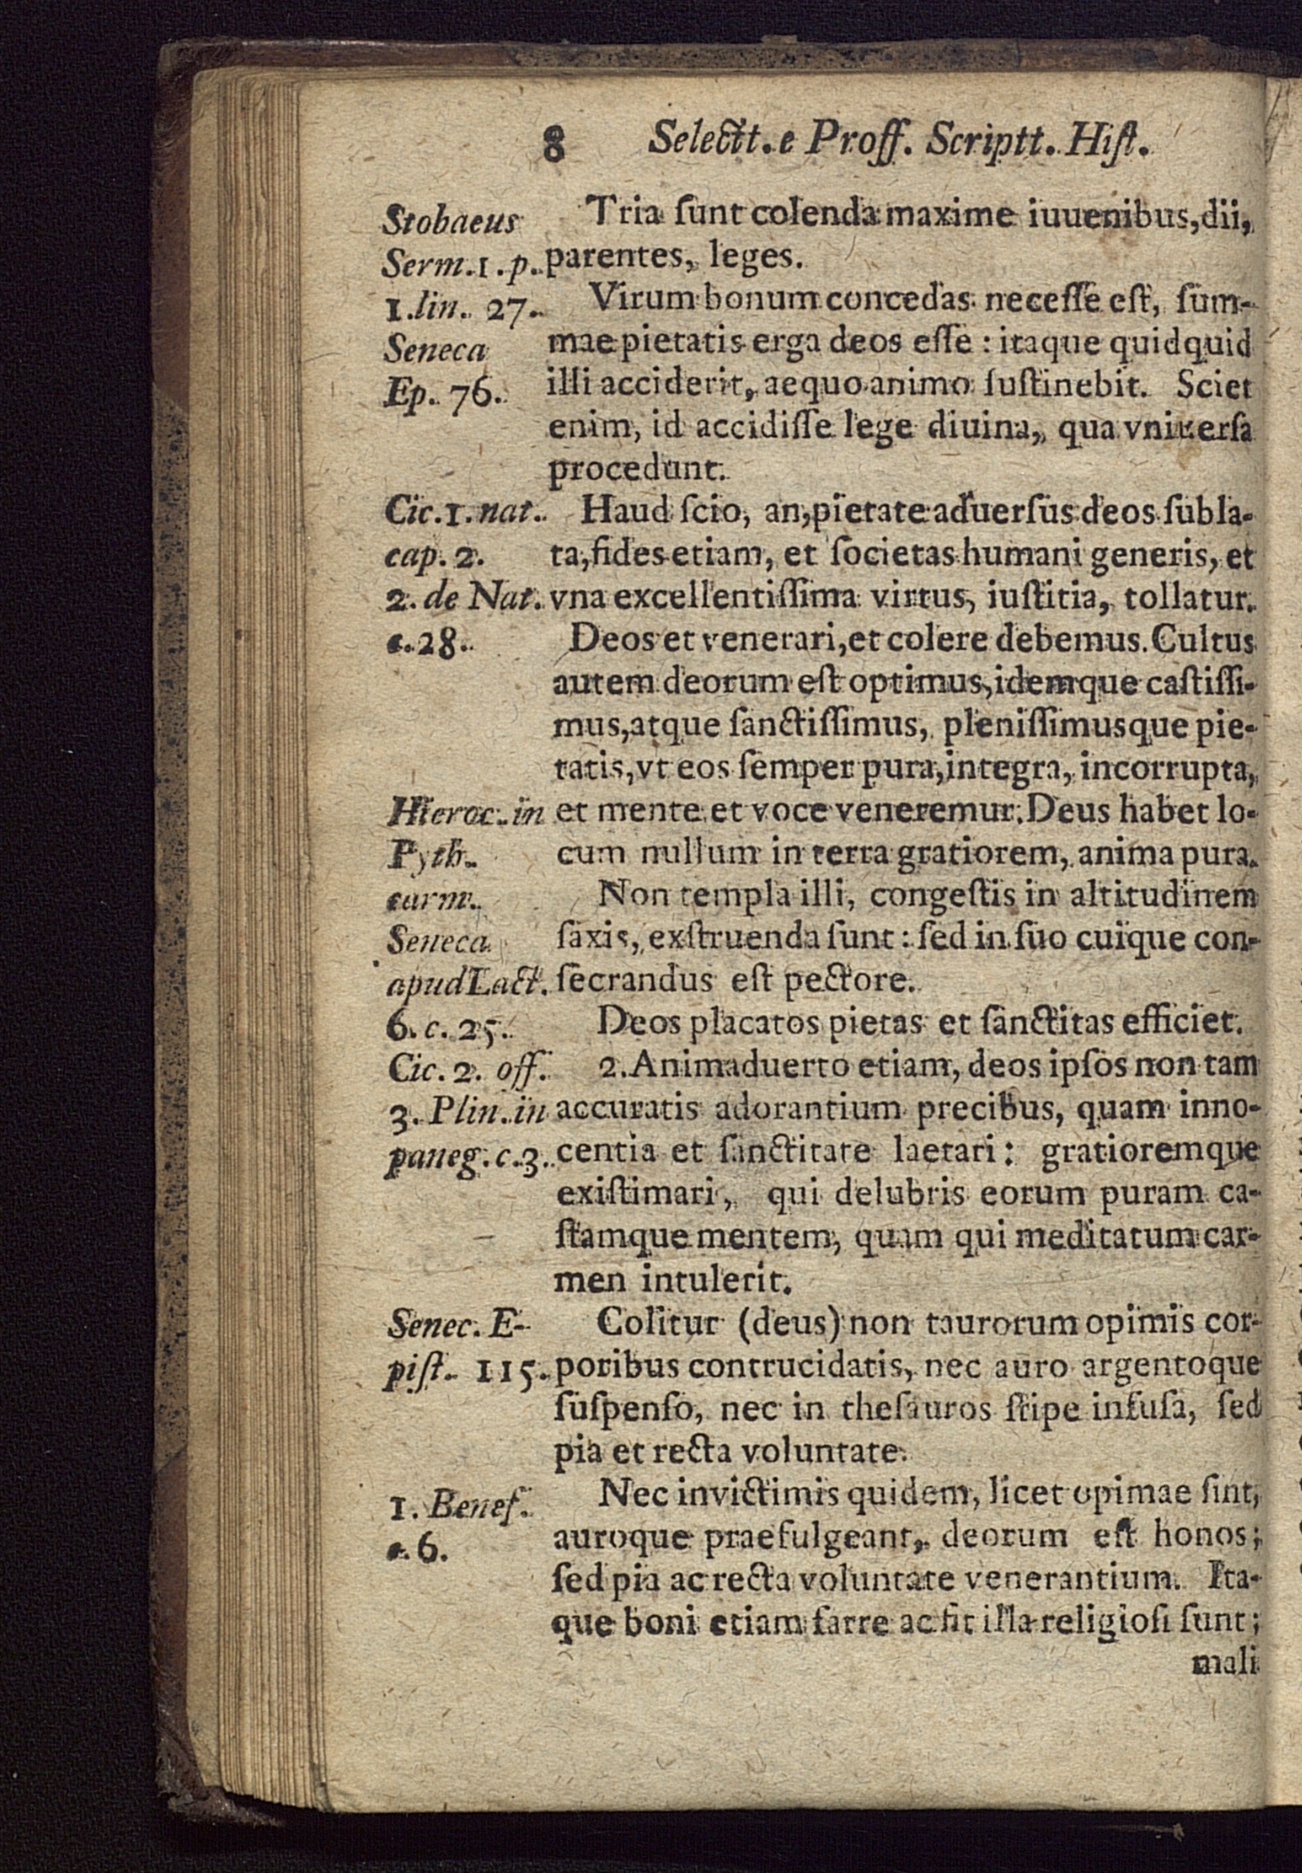 8 Selectt. e Proff. Scriptt. Hist.
Stobaeus
Serm. 1. p.
1. lin. 27.
Seneca
Ep. 76.
Tria sunt colenda maxime iuuenibus, dii,
parentes, leges.
Virum bonum concedas necesse est, sum-
mae pietatis erga deos esse: itaque quidquid
illi acciderit, aequo animo sustinebit. Sciet
enim, id accidisse lege diuina, qua vniuersa
procedunt.
Cic. 1. nat.
cap. 2.
2. de Nat.
c. 28.
Haud scio, an, pietate aduersus deos subla-
ta, fides etiam, et societas humani generis, et
vna excellentissima virtus, iustitia, tollatur.
Deos et venerari, et colere debemus. Cultus
autem deorum est optimus, idemque castissi-
mus, atque sanctissimus, plenissimusque pie-
tatis, vt eos semper pura, integra, incorrupta,
et mente et voce veneremur. Deus habet lo-
cum nullum in terra gratiorem, anima pura.
Hieroc. in
Pyth.
carm.
Seneca
apud Lact.
6. c. 25.
Non templa illi, congestis in altitudinem
saxis, exstruenda sunt: sed in suo cuique con-
secrandus est pectore.
Deos placatos pietas et sanctitas efficiet.
Cic. 2. off.
3. Plin. in
paneg. c. 3.
2. Animaduerto etiam, deos ipsos non tam
accuratis adorantium precibus, quam inno-
centia et sanctitate laetari: gratioremque
existimari, qui delubris eorum puram ca-
stamque mentem, quam qui meditatum car-
men intulerit.
Senec. E-
pist. 115.
Colitur (deus) non taurorum opimis cor-
poribus contrucidatis, nec auro argentoque
suspenso, nec in thesauros stipe infusa, sed
pia et recta voluntate.
1. Benef.
c. 6.
Nec in victimis quidem, licet opimae sint,
auroque praefulgeant, deorum est honos;
sed pia ac recta voluntate venerantium. Ita-
que boni etiam farre ac fitilla religiosi sunt;
mali